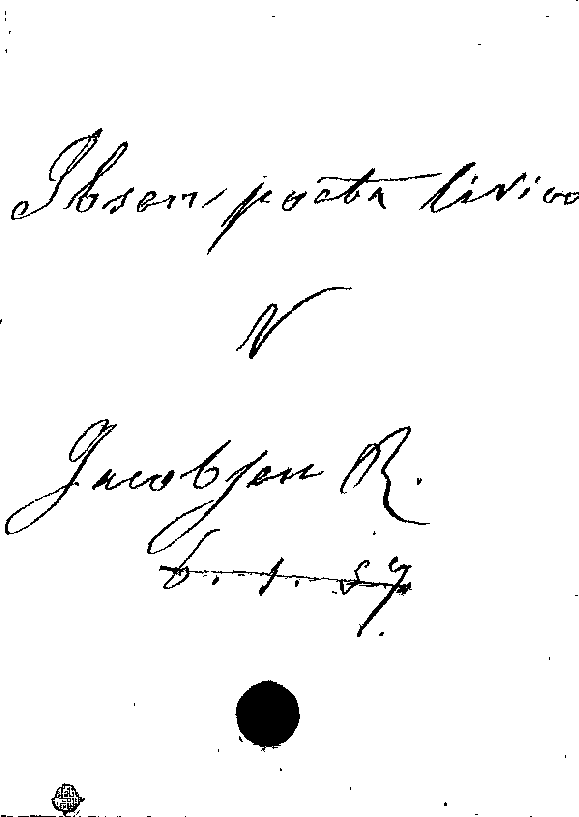 Ibsen, poeta lirico
V
Jacobsen R.
6. 1. 57.